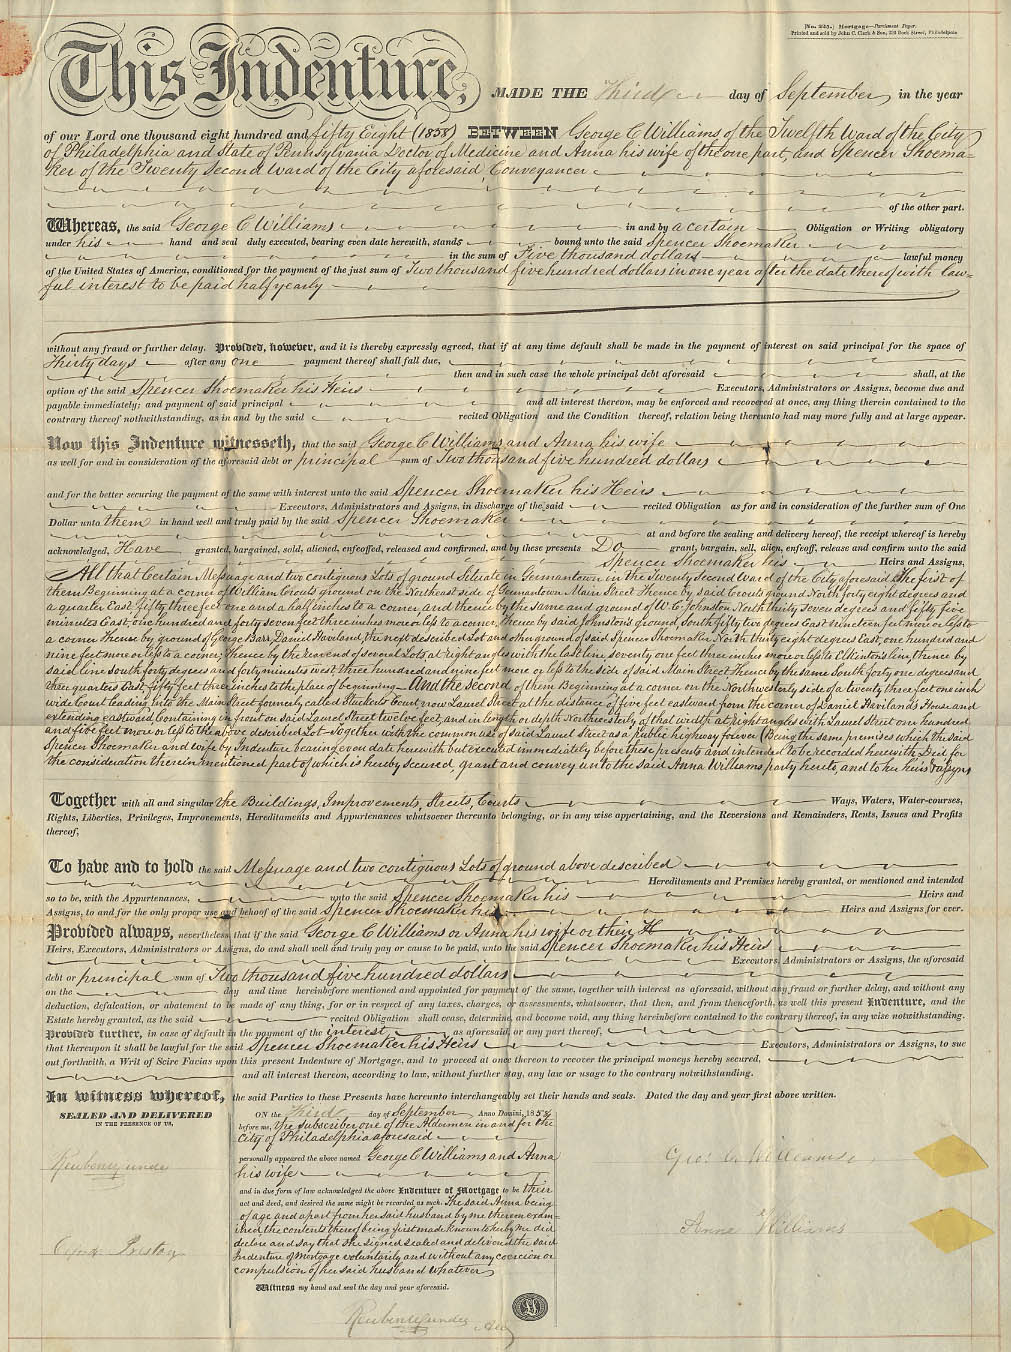 [No. 257.] Mortgage—Parchment Paper.
Printed and sold by John C. Clark & Son, 230 Dock Street, Philadelphia
This Indenture, MADE THE Third day of September in the year
of our Lord one thousand eight hundred and fifty Eight (1858) BETWEEN George C Williams of the Twelfth Ward of the City
of Philadelphia and State of Pennsylvania Doctor of Medicine and Anna his wife of the one part, and Spencer Shoema-
ker of the Twenty Second Ward of the City aforesaid, Conveyancer
of the other part.
Whereas, the said George C Williams in and by a certain Obligation or Writing obligatory
under his hand and seal duly executed, bearing even date herewith, stands bound unto the said Spencer Shoemaker
in the sum of Five thousand dollars lawful money
of the United States of America, conditioned for the payment of the just sum of Two thousand five hundred dollars in one year after the date thereof with law-
ful interest to be paid half yearly
without any fraud or further delay. Provided, however, and it is thereby expressly agreed, that if at any time default shall be made in the payment of interest on said principal for the space of
Thirty days after any one payment thereof shall fall due,
then and in such case the whole principal debt aforesaid shall, at the
option of the said Spencer Shoemaker his Heirs Executors, Administrators or Assigns, become due and
payable immediately; and payment of said principal and all interest thereon, may be enforced and recovered at once, any thing therein contained to the
contrary thereof notwithstanding, as in and by the said recited Obligation and the Condition thereof, relation being thereunto had may more fully and at large appear.
Now this Indenture witnesseth, that the said George C Williams and Anna his wife
as well for and in consideration of the aforesaid debt or principal sum of Two thousand five hundred dollars
and for the better securing the payment of the same with interest unto the said Spencer Shoemaker his Heirs
Executors, Administrators and Assigns, in discharge of the said recited Obligation as for and in consideration of the further sum of One
Dollar unto them in hand well and truly paid by the said Spencer Shoemaker
at and before the sealing and delivery hereof, the receipt whereof is hereby
acknowledged, Have granted, bargained, sold, aliened, enfeoffed, released and confirmed, and by these presents Do grant, bargain, sell, alien, enfeoff, release and confirm unto the said
Spencer Shoemaker his Heirs and Assigns,
All that Certain Messuage and two contiguous Lots of ground Situate in Germantown in the Twenty Second Ward of the City aforesaid The first of
them Beginning at a corner of William Crouts ground on the Northeast side of Germantown Main Street Thence by said Crouts ground North forty eight degrees and
a quarter East, fifty three feet one and a half inches to a corner, and thence by the same and ground of W. C. Johnston North thirty seven degrees and fifty five
minutes East, one hundred and forty seven feet three inches more or less to a corner, thence by said Johnston's ground, South fifty two degrees East nineteen feet more or less to
a corner thence by ground of George Bass, Daniel Haviland, the next described Lot and other ground of said Spencer Shoemaker North thirty eight degrees East, one hundred and
nine feet more or less to a corner; thence by the rear end of several Lots at right angles with the last line seventy one feet three inches more or less to line, thence by
said line South forty degrees and forty minutes west, three hundred and nine feet more or less to the side of said Main Street Thence by the same South forty one degrees and
three quarters East, fifty feet three inches to the place of beginning And the second of them Beginning at a corner on the Northwesterly side of a twenty three feet one inch
wide Court leading into the Main Street formerly called Stuckerts Court, now Laurel Street at the distance of five feet eastward from the corner of Daniel Havilands House and
extending eastward Containing in front on said Laurel Street twelve feet, and in length or depth Northwesterly of that width at right angles with Laurel Street one hundred
and five feet more or less to the above described Lot Together with the common use of said Laurel Street as a public highway forever (Being the same premises which the said
Spencer Shoemaker and wife by Indenture bearing even date herewith but executed immediately before these presents and intended to be recorded herewith Deed for
the consideration therein mentioned part of which is hereby secured, grant and convey unto the said Anna Williams party hereto, and to her heirs & assigns
Together with all and singular the Buildings, Improvements, Streets, Courts Ways, Waters, Water-courses,
Rights, Liberties, Privileges, Improvements, Hereditaments and Appurtenances whatsoever thereunto belonging, or in any wise appertaining, and the Reversions and Remainders, Rents, Issues and Profits
thereof,
To have and to hold the said Messuage and two contiguous Lots of ground above described
Hereditaments and Premises hereby granted, or mentioned and intended
so to be, with the Appurtenances, unto the said Spencer Shoemaker his Heirs and
Assigns, to and for the only proper use and behoof of the said Spencer Shoemaker his Heirs and Assigns for ever.
Provided always, nevertheless, that if the said George C Williams or Anna his wife or their H
Heirs, Executors, Administrators or Assigns, do and shall well and truly pay or cause to be paid, unto the said Spencer Shoemaker his Heirs
Executors, Administrators or Assigns, the aforesaid
debt or principal sum of Two thousand five hundred dollars
on the day and time hereinbefore mentioned and appointed for payment of the same, together with interest as aforesaid, without any fraud or further delay, and without any
deduction, defalcation, or abatement to be made of any thing, for or in respect of any taxes, charges, or assessments, whatsoever, that then, and from thenceforth, as well this present Indenture, and the
Estate hereby granted, as the said recited Obligation shall cease, determine, and become void, any thing hereinbefore contained to the contrary thereof, in any wise notwithstanding.
Provided further, in case of default in the payment of the interest as aforesaid, or any part thereof,
that thereupon it shall be lawful for the said Spencer Shoemaker his Heirs Executors, Administrators or Assigns, to sue
out forthwith, a Writ of Scire Facias upon this present Indenture of Mortgage, and to proceed at once thereon to recover the principal moneys hereby secured,
and all interest thereon, according to law, without further stay, any law or usage to the contrary notwithstanding.
In witness whereof, the said Parties to these Presents have hereunto interchangeably set their hands and seals. Dated the day and year first above written.
SEALED AND DELIVERED
IN THE PRESENCE OF US,
ON the Third day of September Anno Domini, 1858
before me, the subscriber one of the Aldermen in and for the
City of Philadelphia aforesaid
personally appeared the above named George C Williams and Anna
his wife
and in due form of law acknowledged the above Indenture of Mortgage to be their
act and deed, and desired the same might be recorded as such. The said Anna being
of age and apart from her said husband by me thereon exam-
ined, the contents thereof being first made known to her by me did
declare and say that she signed sealed and delivered the said
Indenture of Mortgage voluntarily and without any coercion or
compulsion of her said husband whatever
Witness my hand and seal the day and year aforesaid.
Geo: C. Williams
Anna Williams
Preston